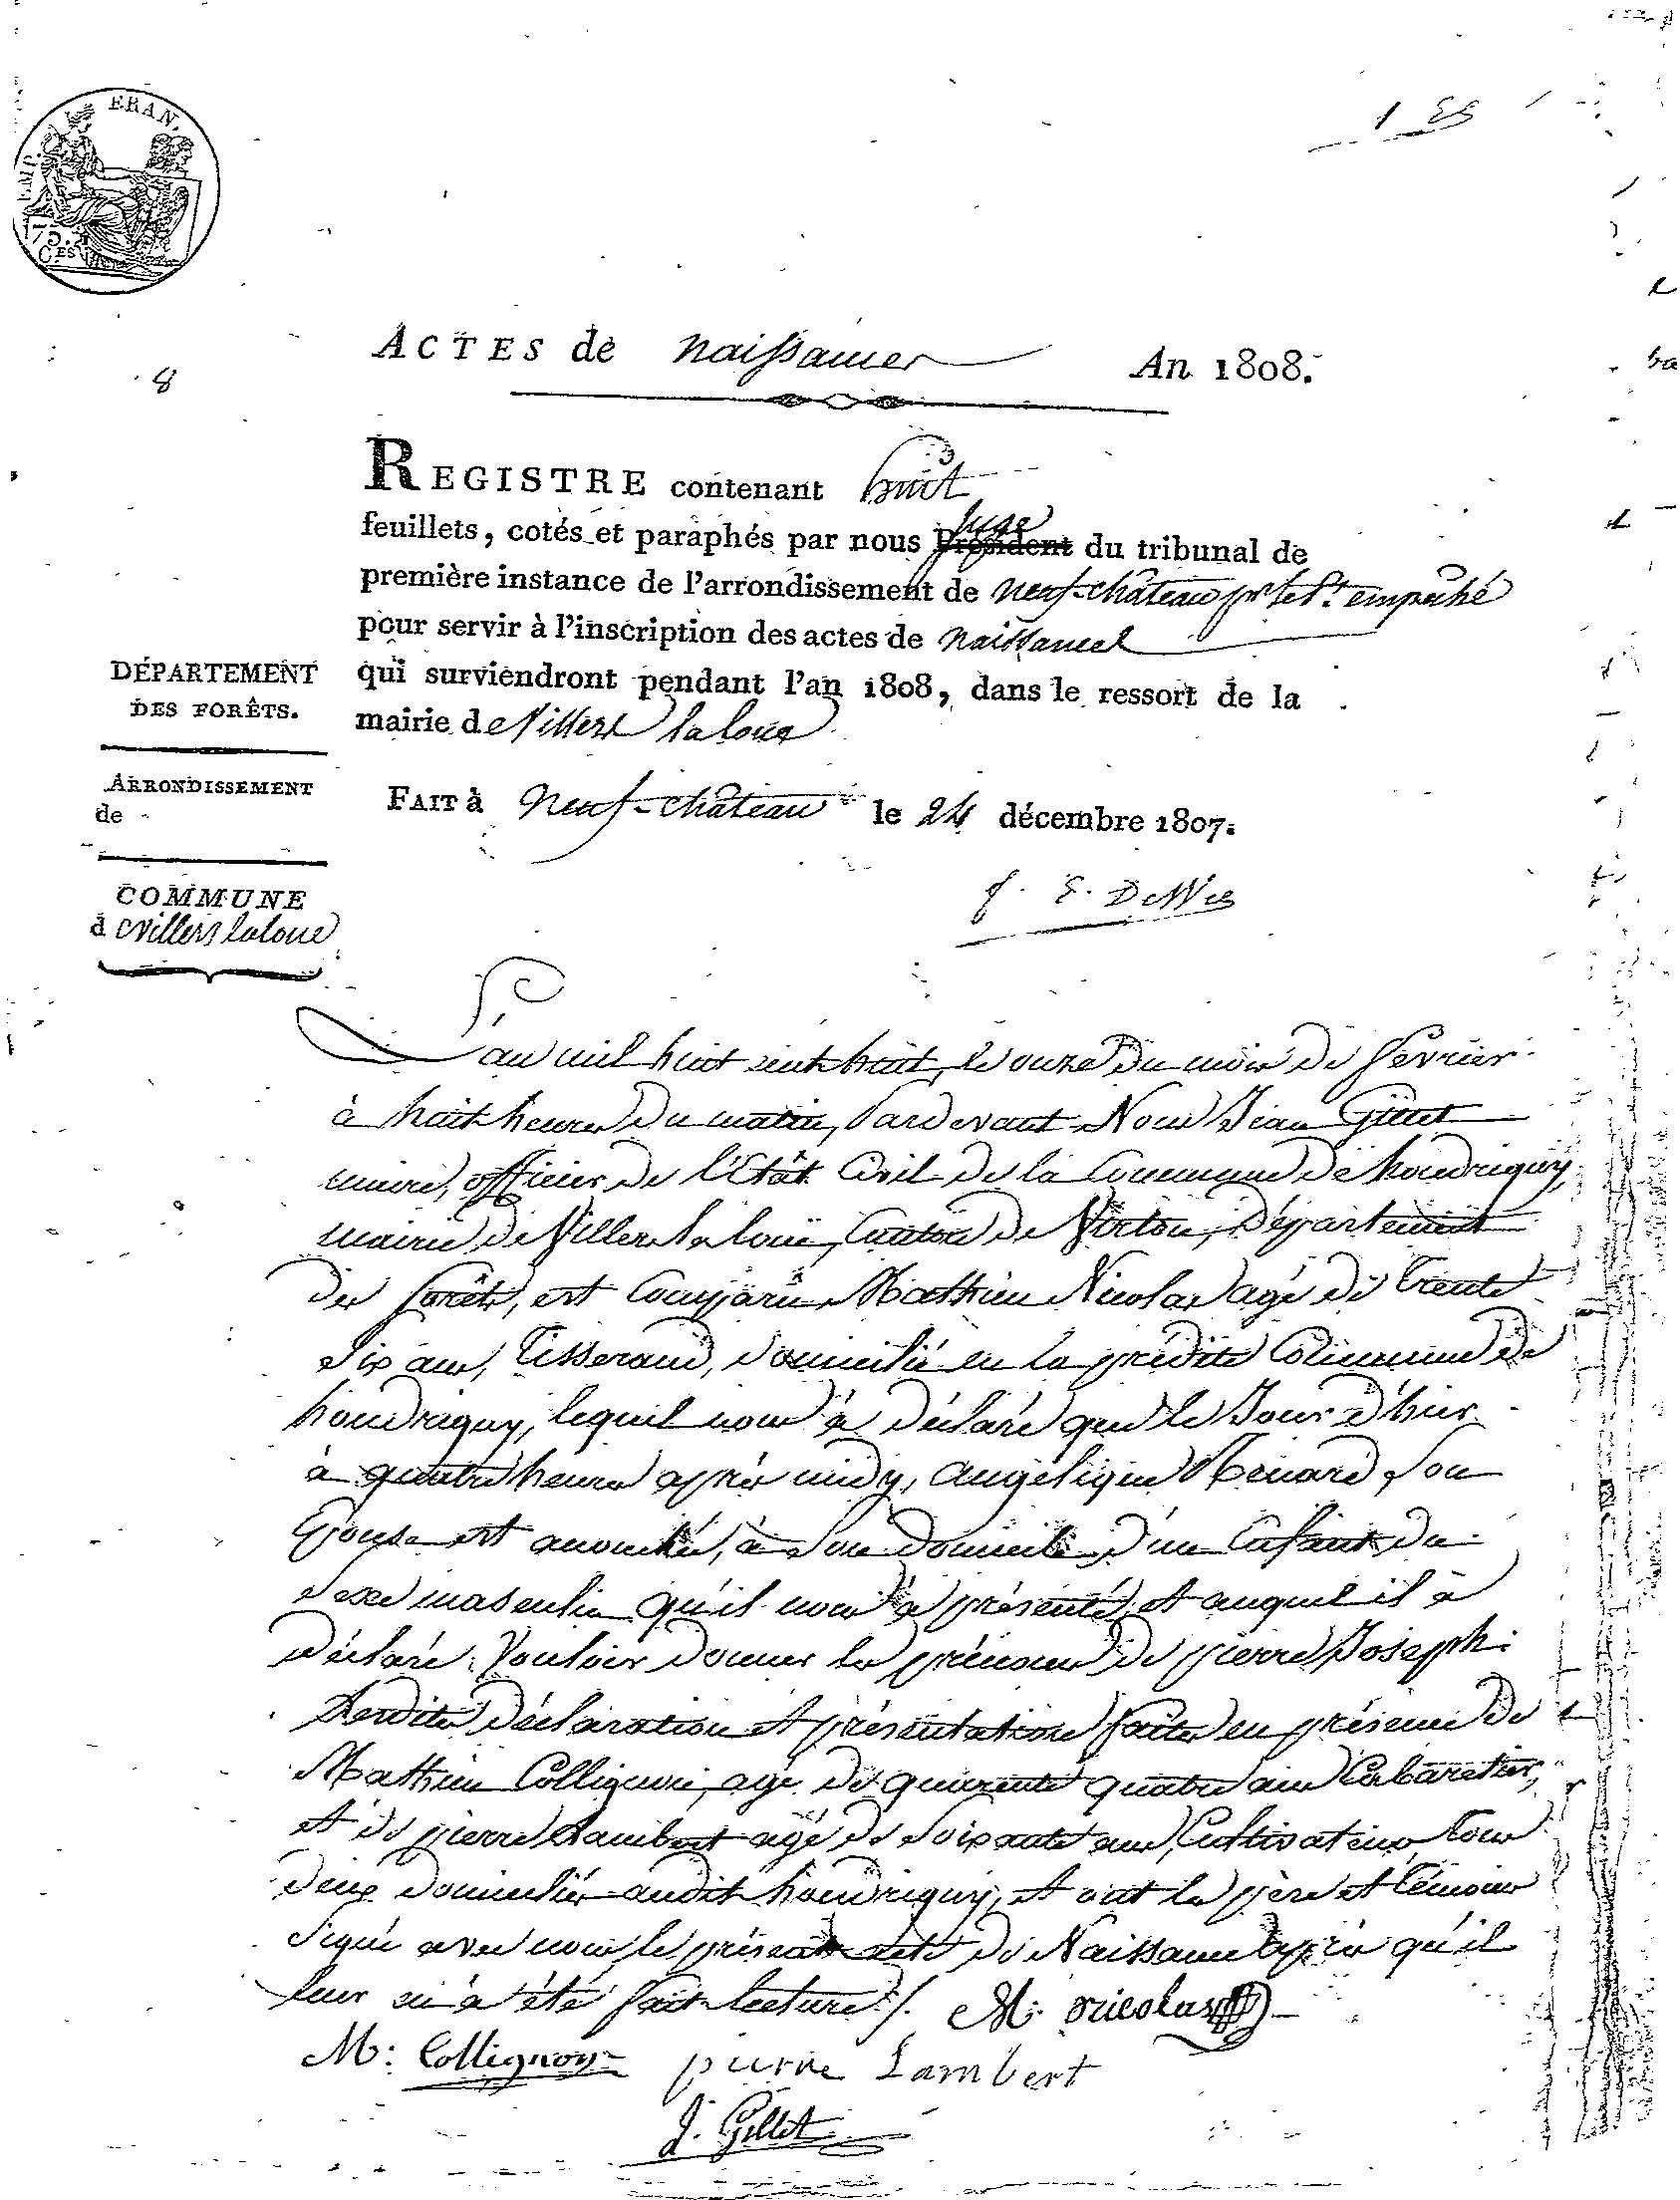 EMP. FRAN.
75. C.ES
8
ACTES de naissances An 1808.
REGISTRE contenant huit
feuillets, cotés et paraphés par nous Juge Président du tribunal de
première instance de l'arrondissement de neuf-château pr le Pt. empeché
pour servir à l'inscription des actes de naissances
qui surviendront pendant l'an 1808, dans le ressort de la
mairie de Villers laloue
DÉPARTEMENT
DES FORÊTS.
ARRONDISSEMENT
de
COMMUNE
d Villers laloue
FAIT à neuf-château le 24 décembre 1807.
L'an mil huit cent huit, le onze du mois de fevrier
à huit heures du matin, Pardevant Nous Jean Gillet
maire, officier de l'Etât Civil de la Commune de houdrigny,
mairie de Villers la loüe, Canton de Virton, Département
des forêts, est Comparû Mathieu Nicolas agé de trente
Six ans, Tisserand, domicilié en la prédite Commune de
houdrigny, lequel nous à déclaré que le Jour d'hier
à quatre heures après midy, angélique Menard Son
Epouse est accouchée, à Son domicile, d'un Enfant du
Sexe masculin qu'il nous à présenté, et auquel il à
déclaré Vouloir donner les prénoms de pierre Joseph.
Lesdites déclaration et présentation faites en présence de
Mathieu Collignon, agé de quarente quatre ans Cabaretier,
et de pierre Lambert agé de Soixante ans, Cultivateur, tous
deux domiciliés audit houdrigny, et ont les père et témoins
Signé avec nous le présent acte de Naissance après qu'il
leur en à été fait lecture /. M: Nicolas
M: Collignon pierre Lambert
J. Gillet